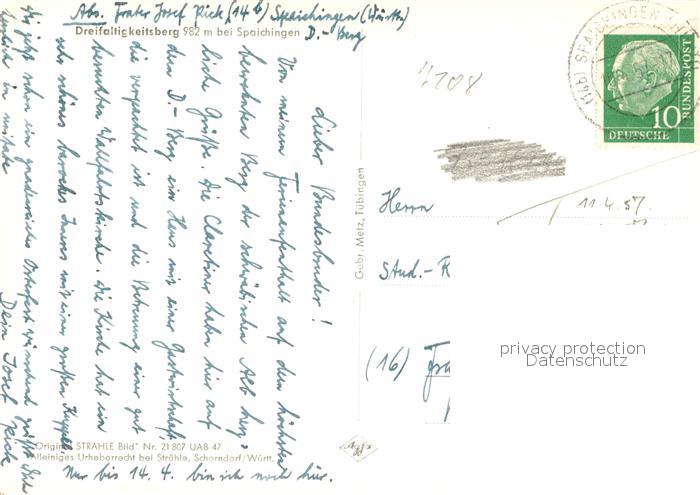 Abs. Frater Josef Rick, (14 b) Spaichingen (Württ.)
D.-Berg
Dreifaltigkeitsberg 982 m bei Spaichingen
Lieber Bundesbruder!
Von meinem Ferienaufenthalt auf dem höchsten
bewohnten Berg der schwäbischen Alb herz-
liche Grüße. Die Claretiner haben hier auf
dem D.-Berg ein Haus mit einer Gastwirtschaft,
die verpachtet ist und die Betreuung einer gut
besuchten Wallfahrtskirche. Die Kirche hat ein
sehr schönes barockes Inneres mit einer großen Kuppel.
Dir jetzt schon ein gnadenreiches Osterfest wünschend grüßt Dich
Dein Josef Rick
Nur bis 14. 4. bin ich noch hier.
"Original STRÄHLE Bild" Nr. 21 807 UAB 47
Alleiniges Urheberrecht bei Strähle, Schorndorf/Württ.
Gebr. Metz, Tübingen
Agfa
4208
(14b) SPAICHINGEN
10
DEUTSCHE
BUNDESPOST
11.4.57.
Herrn
Stud.-R
(16) Fra
privacy protection
Datenschutz